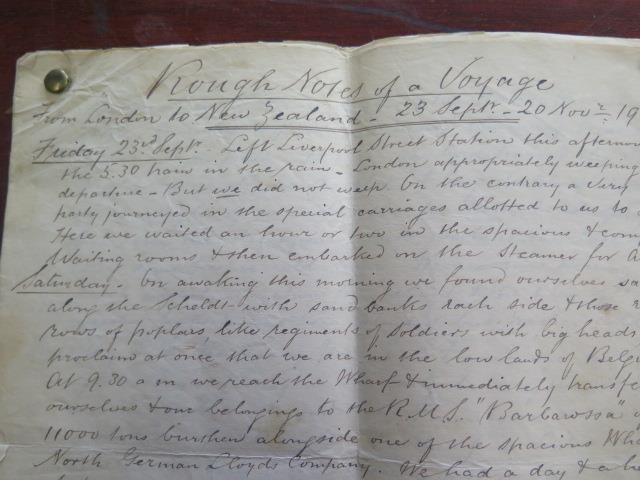 Rough Notes of a Voyage
From London to New Zealand - 23 Septr. - 20 Novr. 19
Friday 23rd Septr. Left Liverpool Street Station this afternoo
the 5.30 train in the rain - London appropriately weeping
departure - But we did not weep. On the contrary a very
party journeyed in the special carriages allotted to us to
Here we waited an hour or two in the spacious & com
Waiting rooms & then embarked on the Steamer for A
Saturday. On awaking this morning we found ourselves sa
along the Scheldt with sand banks each side & those
rows of poplars like regiments of soldiers with big heads
proclaim at once that we are in the low lands of Belg
At 9.30 a m we reach the Wharf & immediately transf
ourselves & our belongings to the R.M.S. "Barbarossa"
11000 tons burthen alongside one of the spacious Wha
North German Lloyds Company. We had a day & a h